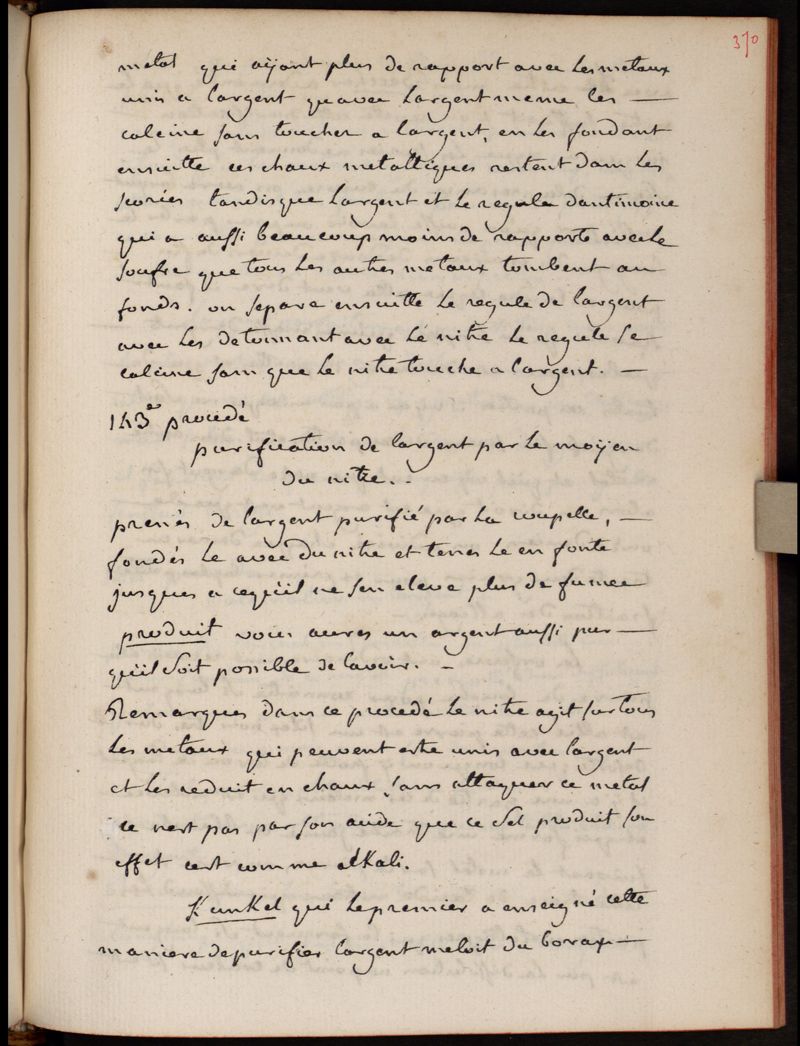 370
metal qui aÿant plus de rapport avec les metaux
unis a largent quavec largent meme les —
calcine sans toucher a largent, en les fondant
ensuitte ces chaux metalliques restent dans les
scories tandisque largent et le regule dantimoine
qui a aussi beaucoup moins de rapports avec le
soufre que tous les autres metaux tombent au
fonds. on separe ensuitte le regule de largent
avec les detonnant avec le nitre le regule se
calcine sans que le nitre touche a l'argent. —
143e procedé
purification de largent par le moÿen
du nitre..
prenés de largent purifié par la coupelle, —
fondés le avec du nitre et tenes le en fonte
jusques a cequ'il ne sen eleve plus de fumee
produit vous aures un argent aussi pur —
qu'il soit possible de lavoir. —
Remarques dans ce procedé le nitre agit sur tous
les metaux qui peuvent estre unis avec largent
et les reduit en chaux, sans attaquer ce metal
ce nest pas par son acide que ce sel produit son
effet cest comme alKali.
Kunkel qui le premier a enseigné cette
maniere depurifier largent meloit du borax —